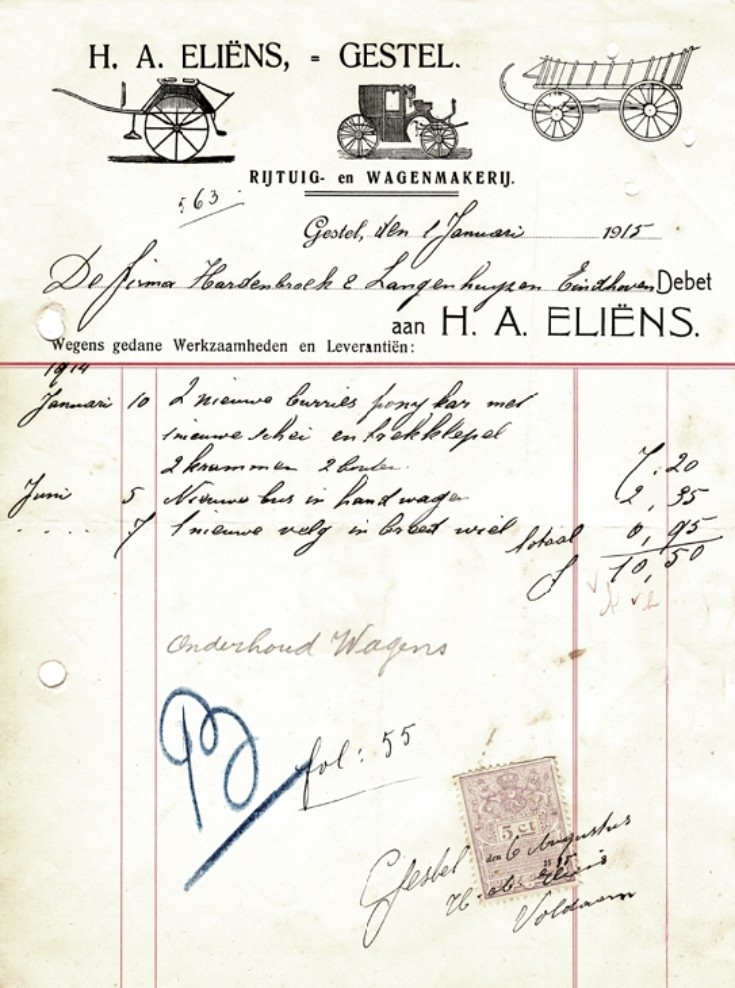 H. A. ELIËNS, = GESTEL.
RIJTUIG- en WAGENMAKERIJ.
563
Gestel, den 1 Januari 1915
De firma Hardenbroek & Langenhuysen Eindhoven Debet
aan H. A. ELIËNS.
Wegens gedane Werkzaamheden en Leverantiën:
1914
Januari 10 2 nieuwe burries pony kar met
1 nieuwe schei en trekklepel
2 krammen 2 bouten 7.20
Juni 5 Nieuwe bus in handwagen 2,35
.... 7 1 nieuwe velg in breed wiel 0,95
totaal f 10,50
Onderhoud Wagens
fol: 55
5 ct
Gestel den 6 Augustus
H. A. Eliëns
Voldaan